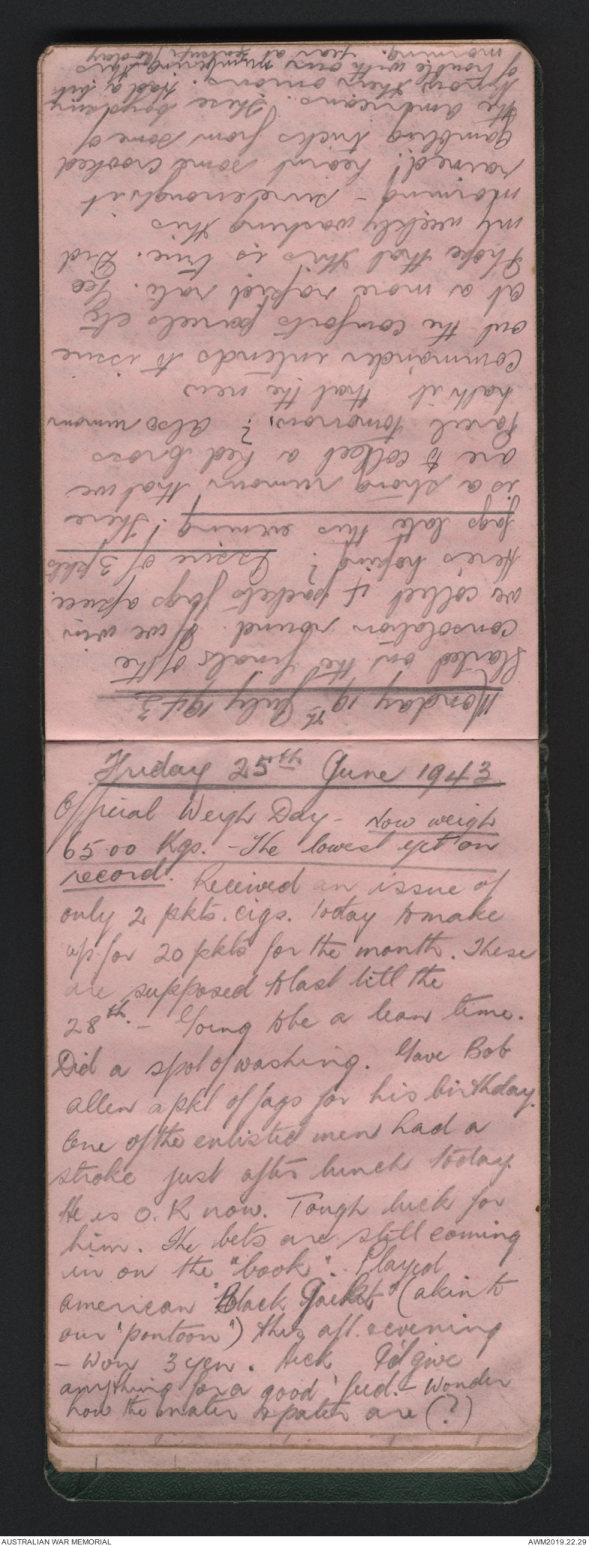 Monday 19th July 1943
Started on the finals of the
consolation round. If we win
we collect 4 packets fags apiece.
Here's hoping? Issue of 3 pkts
fags late this evening! There
is a strong rumour that we
are to collect a Red Cross
Parcel tomorrow? Also rumour
hath it that the new
Commander intends to issue
out the comforts parcels etc
at a more rapid rate. Gee
I hope that this is true. Did
my weekly washing this
morning - sure enough it
rained! Learnt some crooked
gambling tricks from some of
the Americans. These boys
know their onions. Had a
of trouble with our numbering this
morning.
Friday 25th June 1943
Official Weigh Day - Now weigh
65.00 Kgs. - The lowest yet on
record. Received an issue of
only 2 pkts. cigs. today to make
up for 20 pkts for the month. These
are supposed to last till the
28th - Going to be a lean time.
Did a spot of washing. Gave Bob
Allen a pkt of fags for his birthday.
One of the enlisted men had a
stroke just after lunch today.
He is O.K now. Tough luck for
him. The bets are still coming
in on the "book". Played
American "Black Jacket" (akin to
our 'pontoon') this aft. & evening
- Won 3 yen. Heck I'd give
anything for a good 'feed' - Wonder
how the mater & pater are (?)
AUSTRALIAN WAR MEMORIAL
AWM2019.22.29